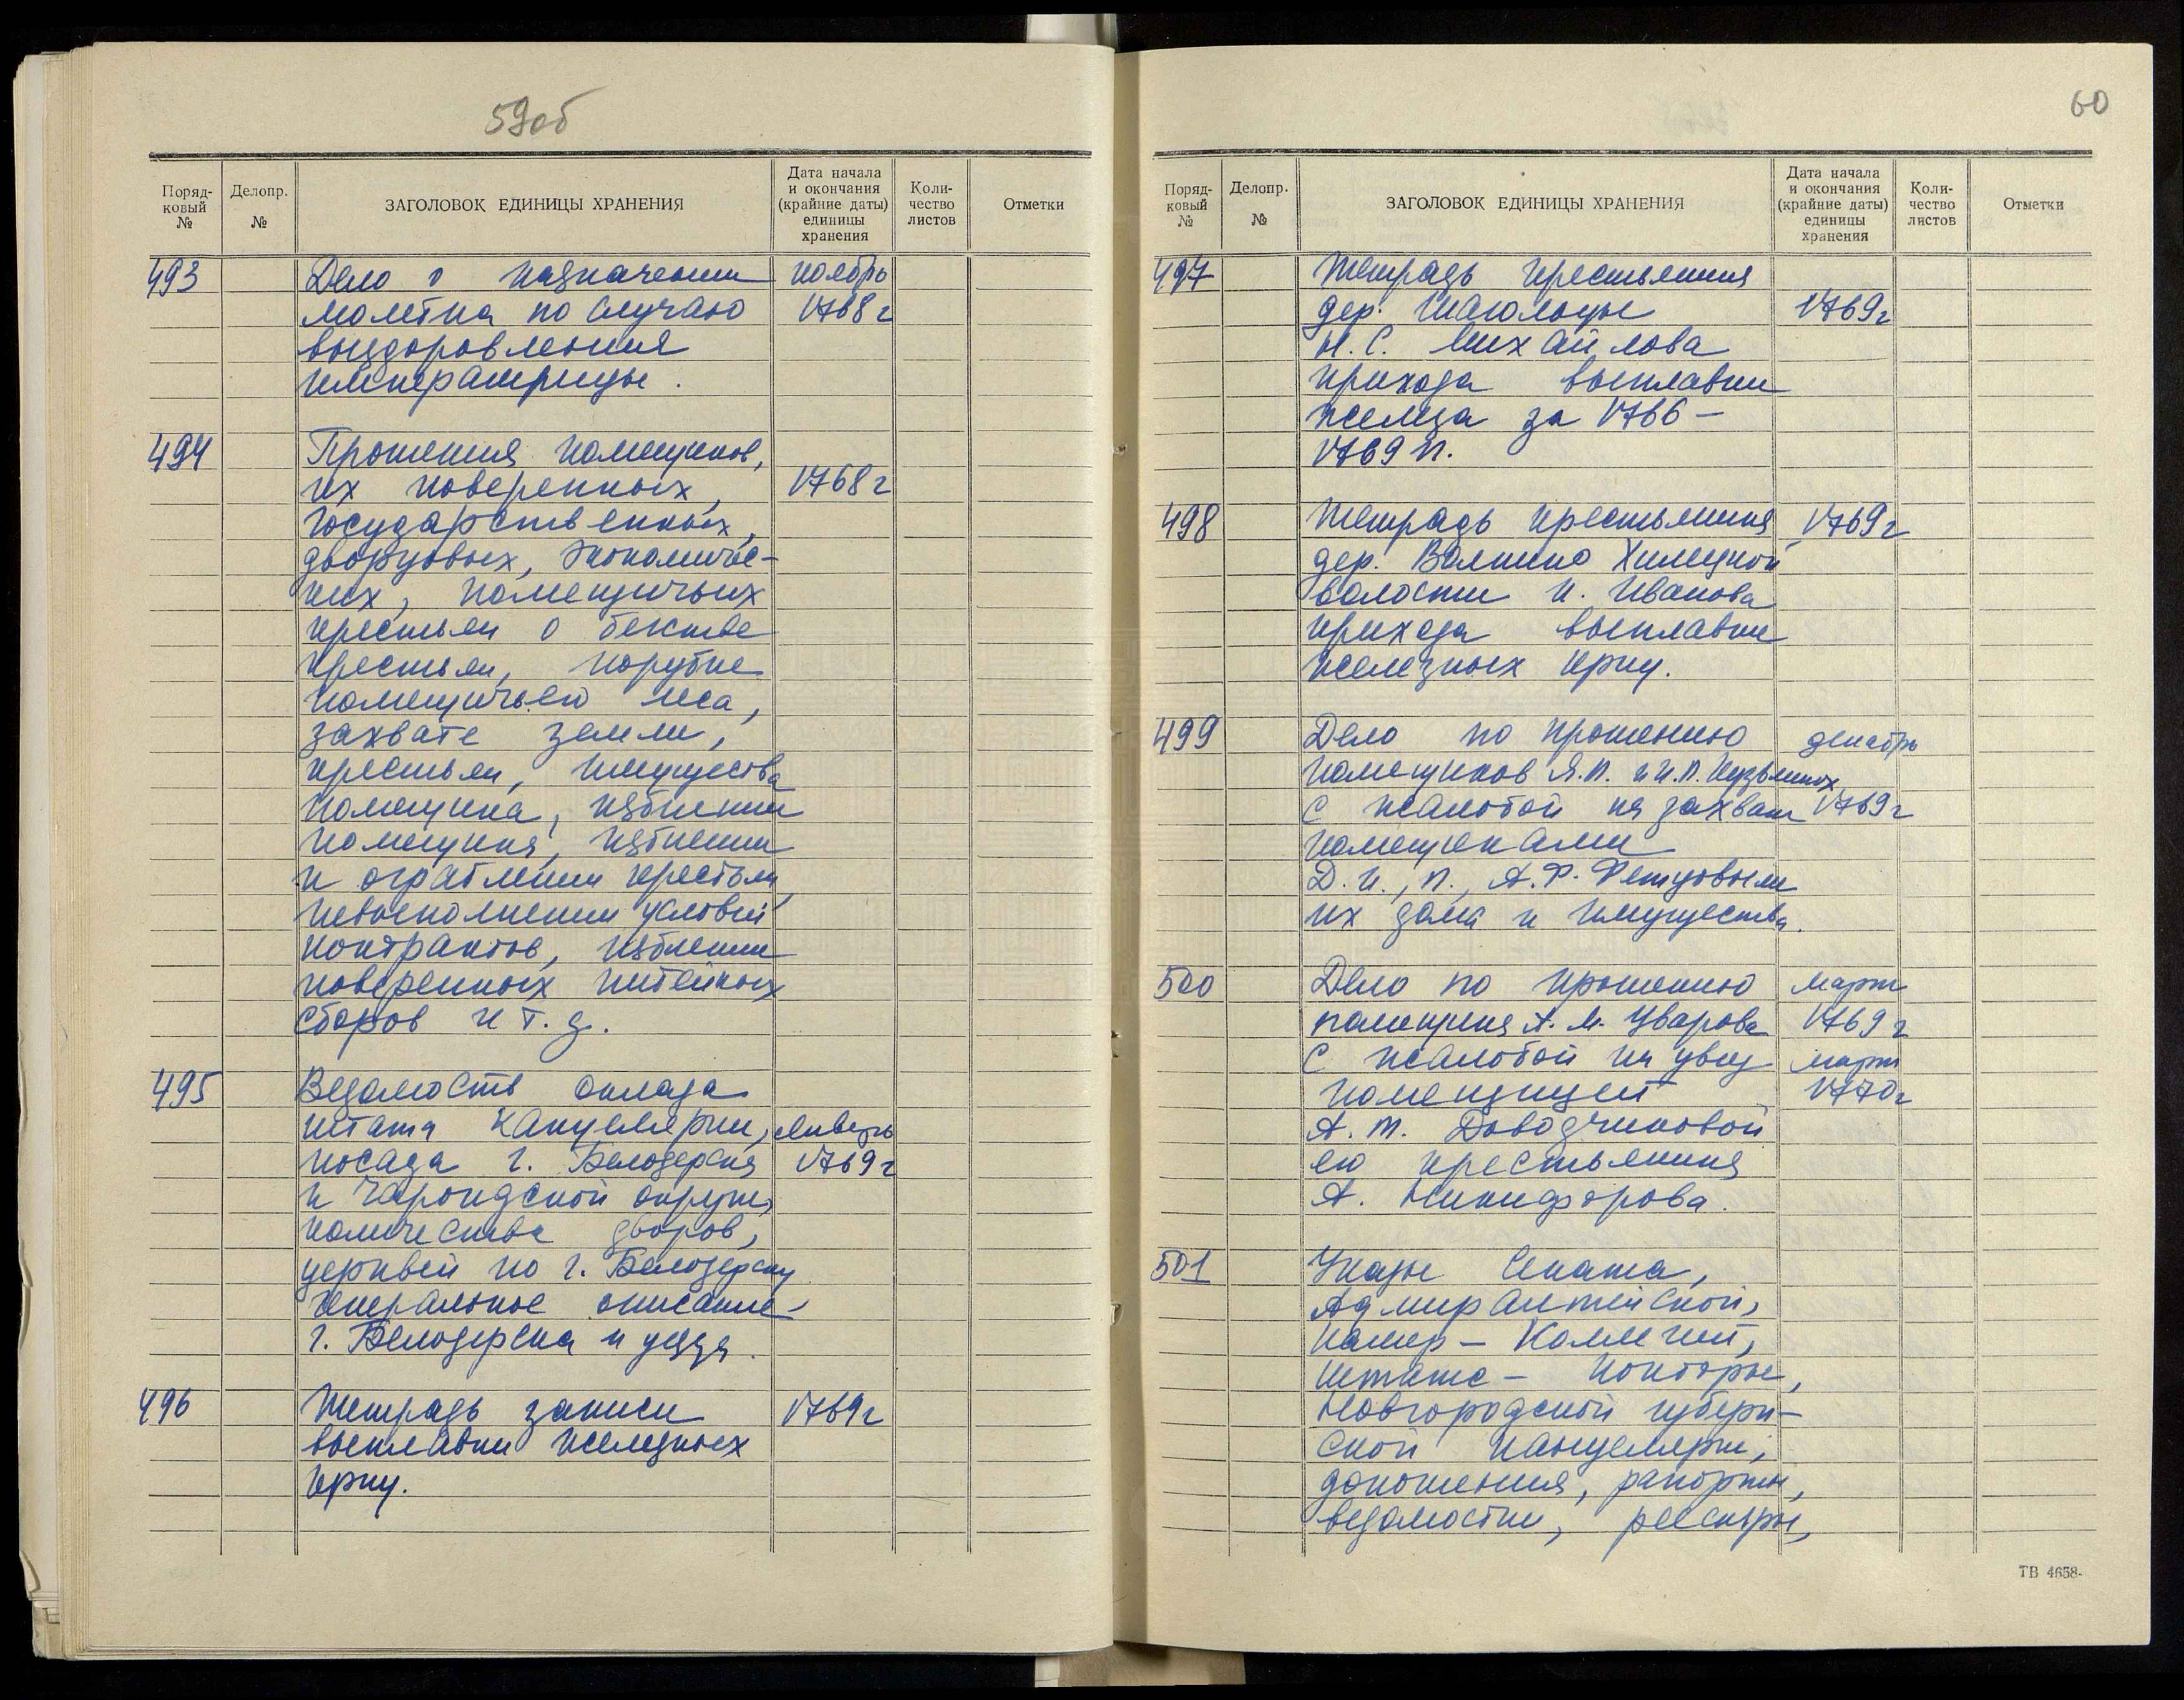 59об
Поряд-
ковый
№
Делопр.
№
ЗАГОЛОВОК ЕДИНИЦЫ ХРАНЕНИЯ
Дата начала
и окончания
(крайние даты)
единицы
хранения
Коли-
чество
листов
Отметки
493 Дело о назначении ноябрь
молебна по случаю 1768 г
выздоровления
императрицы.
494 Прошения помещиков,
их поверенных, 1768 г
государственных,
дворцовых, экономичес-
ких, помещичьих
крестьян о бегстве
крестьян, порубке
помещичьего леса,
захвате земли,
крестьян, имущества
помещика, избиении
помещика, избиении
и ограблении крестьян,
невыполнении условий
контрактов, избиении
поверенных питейных
сборов и т.д.
495 Ведомость оклада
штата канцелярии, январь
посада г. Белозерска 1769 г
и Чарондской округи,
количества дворов,
церквей по г. Белозерску
генеральное описание
г. Белозерска и уезда.
496 Тетрадь записи 1769 г
выплавки железных
криц.
60
Поряд-
ковый
№
Делопр.
№
ЗАГОЛОВОК ЕДИНИЦЫ ХРАНЕНИЯ
Дата начала
и окончания
(крайние даты)
единицы
хранения
Коли-
чество
листов
Отметки
497 Тетрадь крестьянина
дер. 1769 г
Н. С. Михайлова
прихода выплавки
железа за 1766 -
1769 гг.
498 Тетрадь крестьянина 1769 г
дер.
волости И. Иванова
прихода выплавки
железных криц.
499 Дело по прошению декабрь
помещиков Я.П. и И.П. Кузьминых
с жалобой на захват 1769 г
помещиками
Д. И., П., А. Ф.
их дома и имущества.
500 Дело по прошению март
помещика А. М. Уварова 1769 г
с жалобой на увоз март
помещицей 1770 г
А. Т. Доводчиковой
его крестьянина
А. Никифорова.
501 Указы Сената,
Адмиралтейской,
Камер - Коллегий,
Штатс - Конторы,
Новгородской губерн-
ской канцелярии,
доношения, рапорты,
ведомости, реестры,
ТВ 4658-